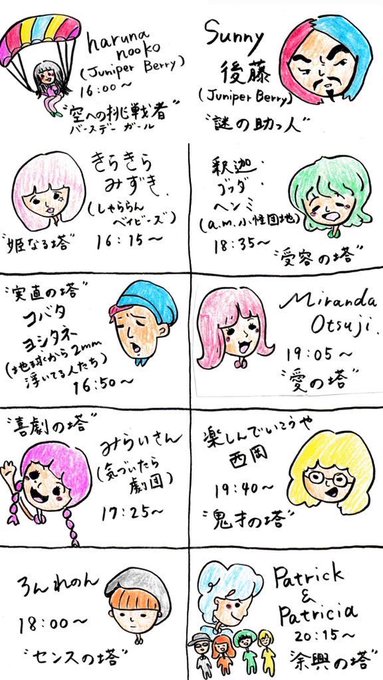 haruna
nooko
(Juniper Berry)
16:00～
"空への挑戦者"
バースデーガール
Sunny
後藤
(Juniper Berry)
"謎の助っ人"
きらきら
みずき
(しゃららん
ベイビーズ)
"姫なる塔"
16:15～
釈迦・
ブッダ・
ヘンミ
(a.m.小性団地)
18:35～
"受容の塔"
"実直の塔"
コバタ
ヨシタネ
(地球から2mm
浮いてる人たち)
16:50～
Miranda
Otsuji.
19:05～
"愛の塔"
"喜劇の塔"
みらいさん
(気づいたら
劇団)
17:25～
楽しんでいこうや
西岡
19:40～
"鬼才の塔"
ろんれのん
18:00～
"センスの塔"
Patrick
&
Patricia
20:15～
"余興の塔"